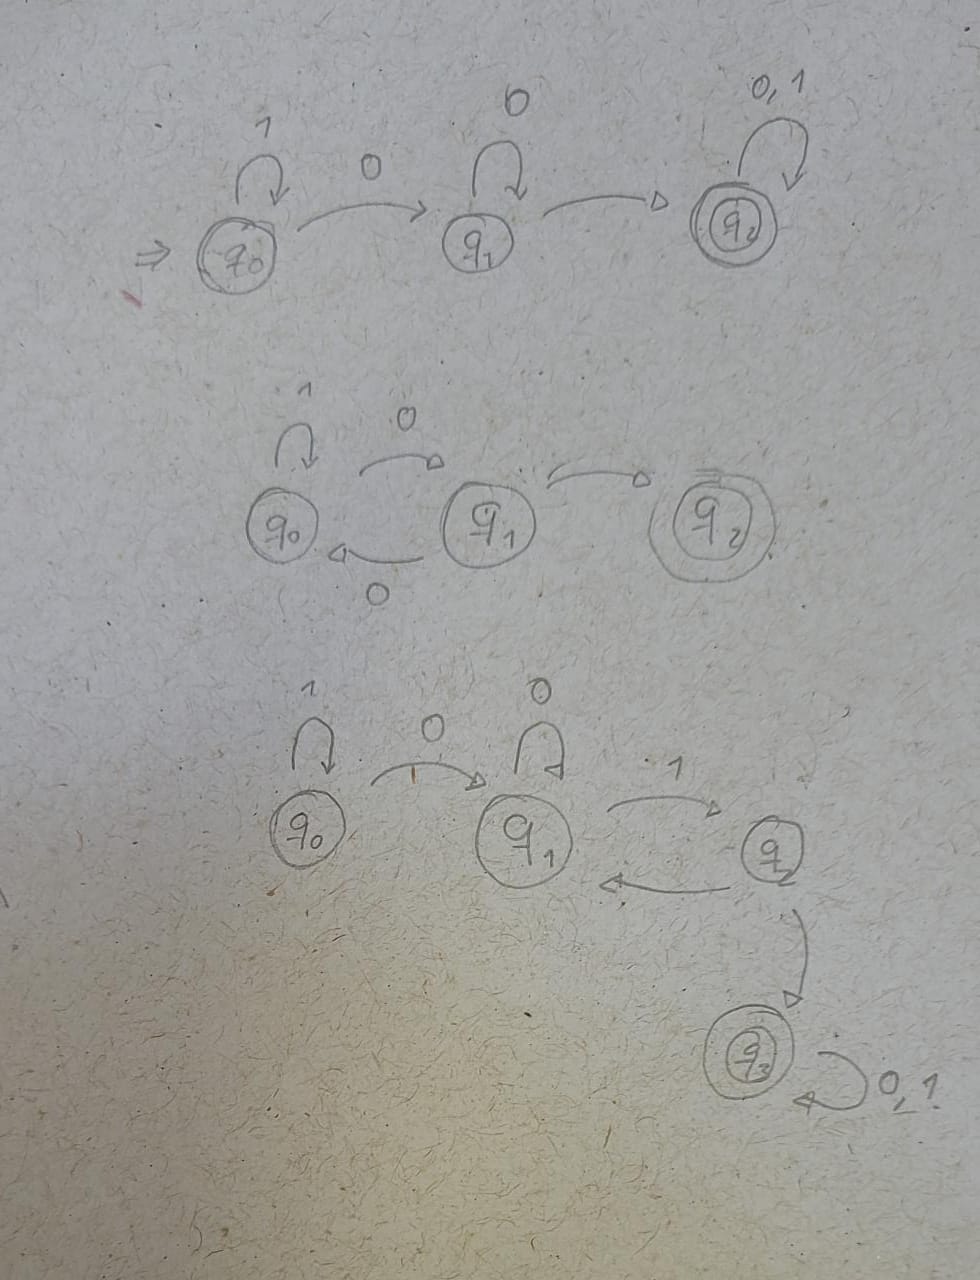 1 0 0 0,1
⇒ q₀ q₁ q₂
1 0
q₀ q₁ q₂
0
1 0 0 1
q₀ q₁ q₂
q₃ 0,1